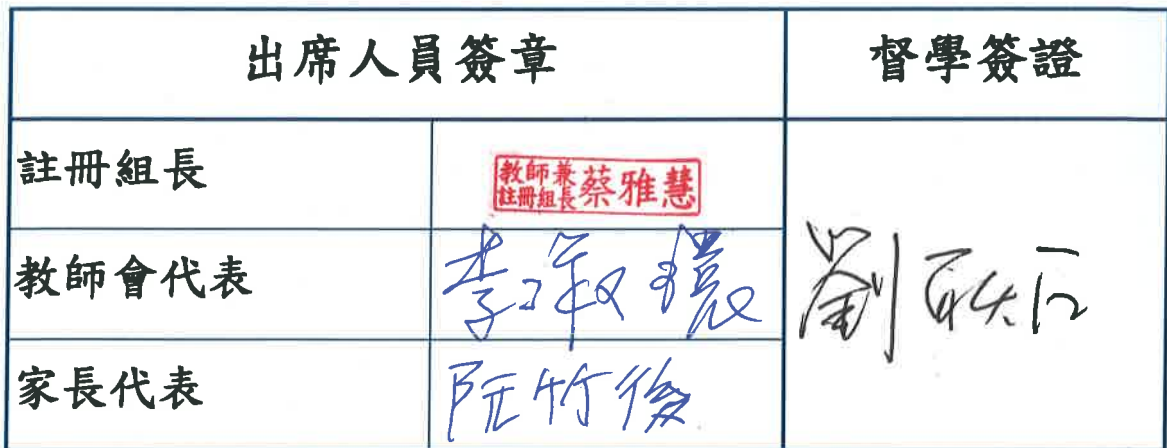 出席人員簽章 督學簽證
註冊組長 教師兼註冊組長 蔡雅慧
教師會代表 李淑環
家長代表 阮竹後
劉